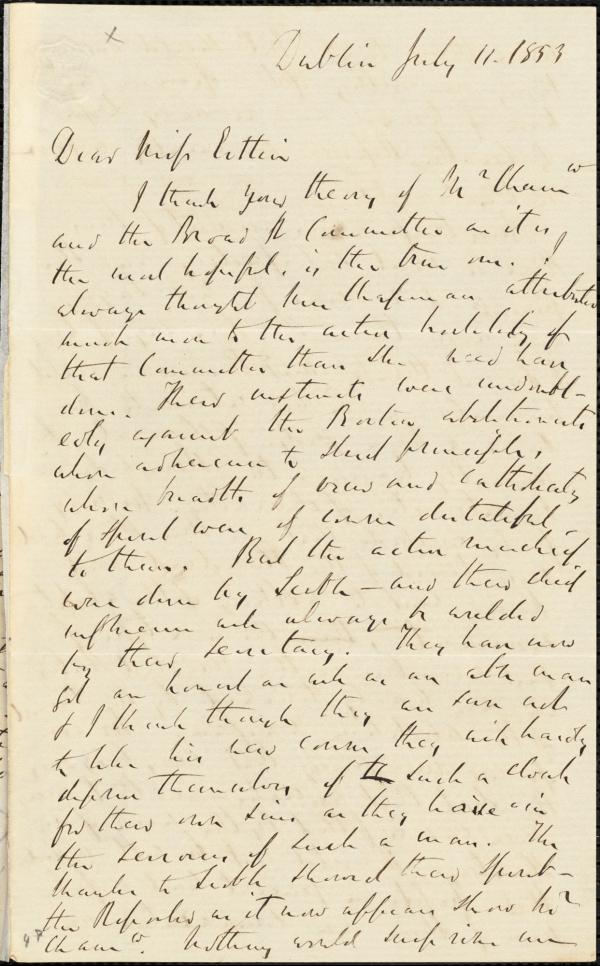 Dublin July 11. 1853
Dear Miss Estlin
I think your theory of Mr Cham^w
and the Broad St Committee as it is
the most hopeful, is the true one. I
always thought Mrs Chapman attributed
much more to the active hostility of
that Committee than she need have
done. Their instincts were undoubt-
edly against the Boston abolitionists
whose adherence to strict principle,
whose breadth of view and catholicity
of spirit were of course distasteful
to them. But the active mischief
was done by Scoble — and their chief
influence will always be wielded
by their secretary. They have now
got an honest as well as an able man
& I think though they are sure not
to like his new course they will hardly
deprive themselves of such a cloak
for their own sins as they have in
the services of such a man. The
thanks to Scoble showed their spirit —
the Reporter as it now appears shows Mr
Cham^w. Nothing would surprise me